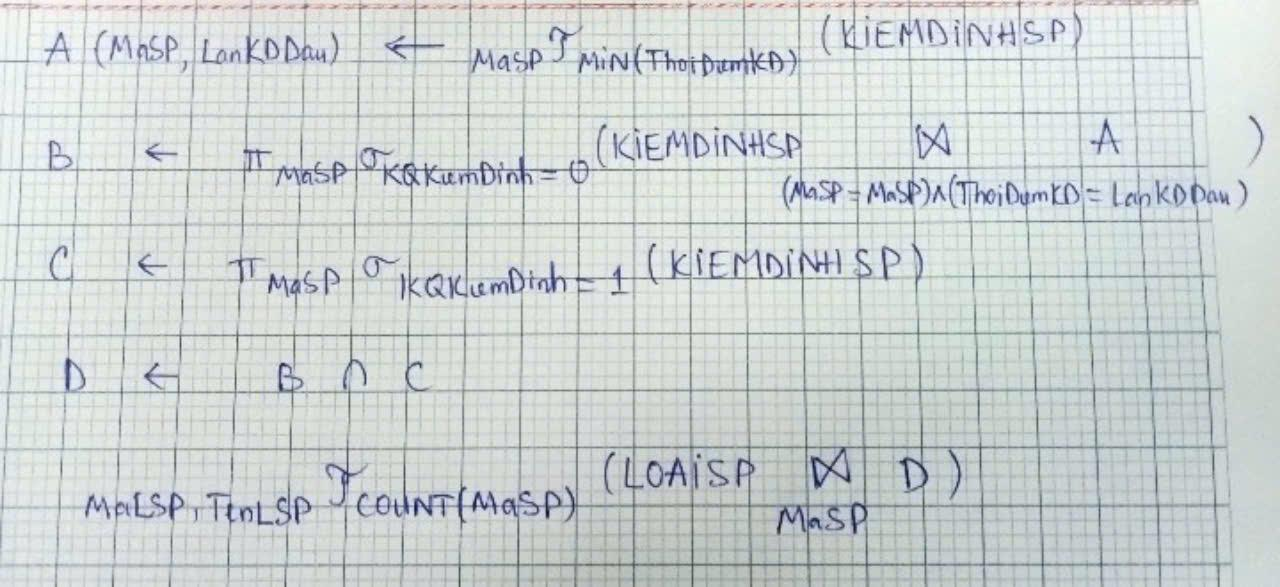 A (MaSP, LanKDDau) ← MaSP ℱ MIN(ThoiDiemKD) (KIEMDINHSP)
B ← π MaSP σ KQKiemDinh = 0 (KIEMDINHSP ⋈ A )
(MaSP = MaSP)∧(ThoiDiemKD = LanKDDau)
C ← π MaSP σ KQKiemDinh = 1 (KIEMDINHSP)
D ← B ∩ C
MaLSP, TenLSP ℱ COUNT(MaSP) (LOAISP ⋈ D)
MaSP